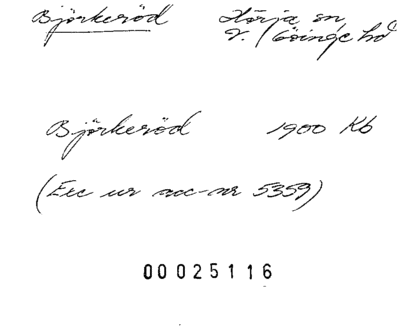 Björkeröd Hörja sn
V. Göinge hd
Björkeröd 1900 Kb
(Exc ur acc-nr 5359)
00025116